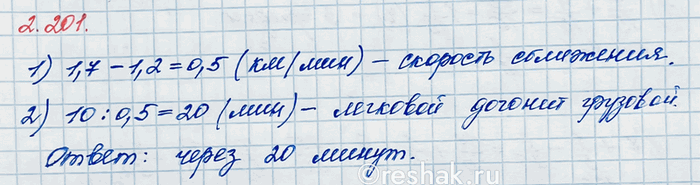 2.201.
1) 1,7 – 1,2 = 0,5 (км/мин) – скорость сближения.
2) 10 : 0,5 = 20 (мин) – легковой догонит грузовой.
Ответ: через 20 минут.
©reshak.ru